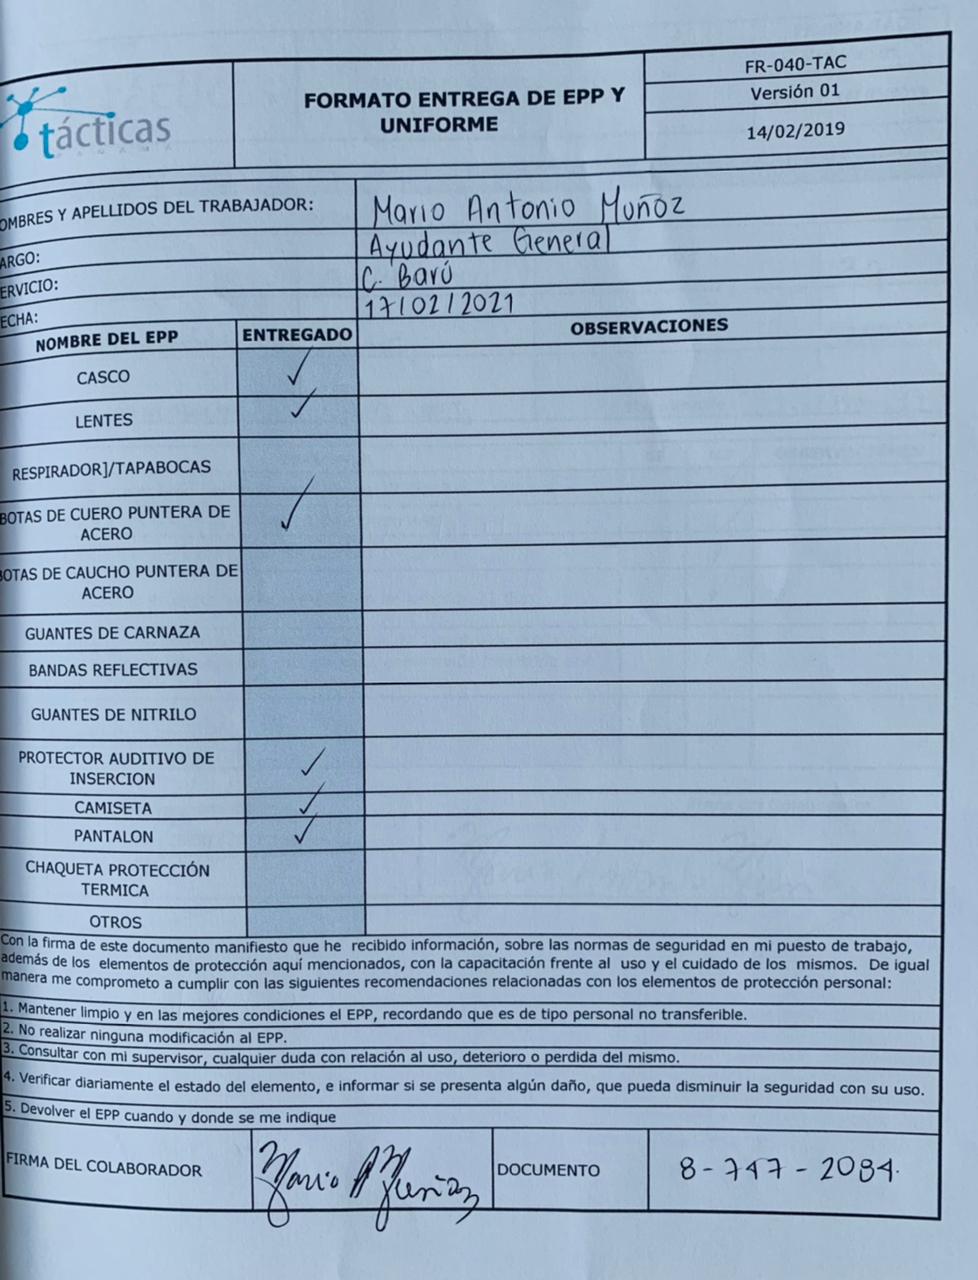 tácticas
PANAMÁ
FORMATO ENTREGA DE EPP Y
UNIFORME
FR-040-TAC
Versión 01
14/02/2019
OMBRES Y APELLIDOS DEL TRABAJADOR:
Mario Antonio Muñoz
ARGO:
Ayudante General
ERVICIO:
C. Barú
ECHA:
17/02/2021
NOMBRE DEL EPP ENTREGADO OBSERVACIONES
CASCO ✓
LENTES ✓
RESPIRADOR]/TAPABOCAS
BOTAS DE CUERO PUNTERA DE
ACERO ✓
BOTAS DE CAUCHO PUNTERA DE
ACERO
GUANTES DE CARNAZA
BANDAS REFLECTIVAS
GUANTES DE NITRILO
PROTECTOR AUDITIVO DE
INSERCION ✓
CAMISETA ✓
PANTALON ✓
CHAQUETA PROTECCIÓN
TERMICA
OTROS
Con la firma de este documento manifiesto que he recibido información, sobre las normas de seguridad en mi puesto de trabajo,
además de los elementos de protección aquí mencionados, con la capacitación frente al uso y el cuidado de los mismos. De igual
manera me comprometo a cumplir con las siguientes recomendaciones relacionadas con los elementos de protección personal:
1. Mantener limpio y en las mejores condiciones el EPP, recordando que es de tipo personal no transferible.
2. No realizar ninguna modificación al EPP.
3. Consultar con mi supervisor, cualquier duda con relación al uso, deterioro o perdida del mismo.
4. Verificar diariamente el estado del elemento, e informar si se presenta algún daño, que pueda disminuir la seguridad con su uso.
5. Devolver el EPP cuando y donde se me indique
FIRMA DEL COLABORADOR
Mario A Muñoz
DOCUMENTO
8-747-2084